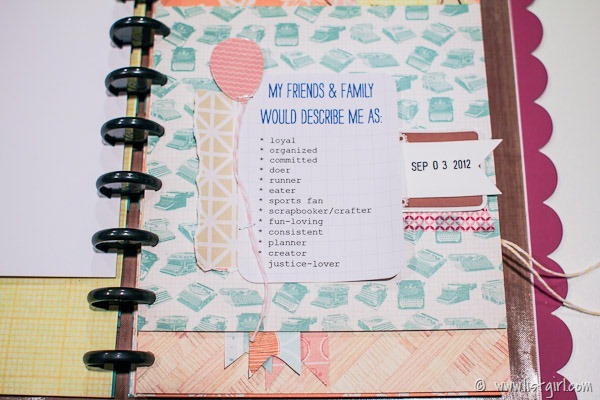 MY FRIENDS & FAMILY
WOULD DESCRIBE ME AS:
* loyal
* organized
* committed
* doer
* runner
* eater
* sports fan
* scrapbooker/crafter
* fun-loving
* consistent
* planner
* creator
justice-lover
SEP 03 2012
© www.listgirl.com